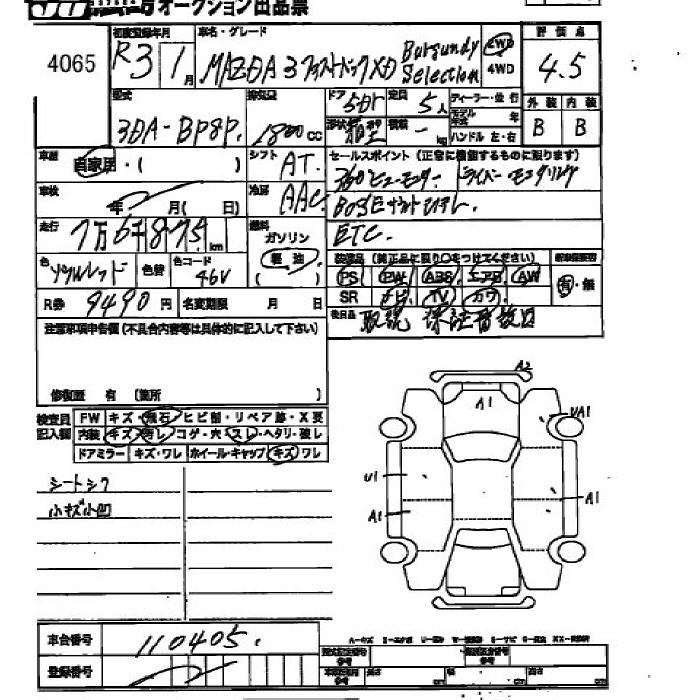 オークション出品票
4065
初度登録年月
R3 1月
車名・グレード
MAZDA 3 ファストバック XD Burgundy Selection
2WD
4WD
評価点
4.5
外装 内装
B B
型式
3DA-BP8P
排気量
1800cc
ドア
5Dr
定員
5人
形状
積載
kg
ディーラー・並行
モデル年式 年
ハンドル 左・右
車歴
自家用・( )
シフト
AT
セールスポイント (正常に機能するものに限ります)
360ビューモニター ドライバーモニタリング
BOSEサウンドシステム
ETC
車検
年 月( 日)
冷房
AAC
走行
7万6千875km
燃料
ガソリン
軽油
( )
色
ソウルレッド
色替
色コード
46V
装備品 (純正品に限り○をつけてください)
PS PW ABS エアB AW
SR ナビ TV カワ
新車保証書
有・無
R券 9490円
名変期限 月 日
後日品
取説 保証書
注意事項申告欄(不具合内容等は具体的に記入して下さい)
修復歴 有 (箇所 )
検査員記入欄
FW キズ・飛石・ヒビ割・リペア跡・X要
内装 キズ・汚レ・コゲ・穴・スレ・ヘタリ・破レ
ドアミラー キズ・ワレ ホイール・キャップ キズ・ワレ
シートシワ
小キズ小凹
A2
A1
UA1
U1
A1
A1
車台番号
110405
登録番号